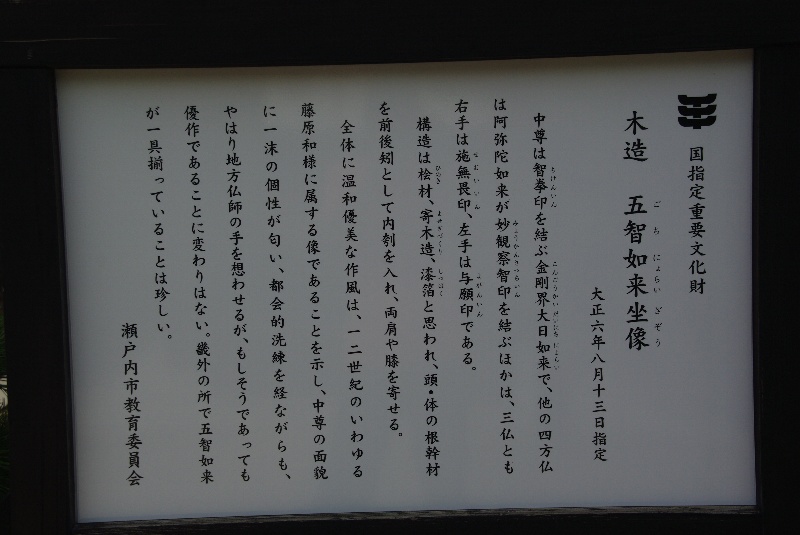 国指定重要文化財
木造　五智如来坐像
ごち　にょらい　ざぞう
大正六年八月十三日指定
中尊は智拳印を結ぶ金剛界大日如来で、他の四方仏
は阿弥陀如来が妙観察智印を結ぶほかは、三仏とも
右手は施無畏印、左手は与願印である。
構造は桧材、寄木造、漆箔と思われ、頭・体の根幹材
を前後矧として内刳を入れ、両肩や膝を寄せる。
全体に温和優美な作風は、一二世紀のいわゆる
藤原和様に属する像であることを示し、中尊の面貌
に一沫の個性が匂い、都会的洗練を経ながらも、
やはり地方仏師の手を想わせるが、もしそうであっても
優作であることに変わりはない。畿外の所で五智如来
が一具揃っていることは珍しい。
瀬戸内市教育委員会